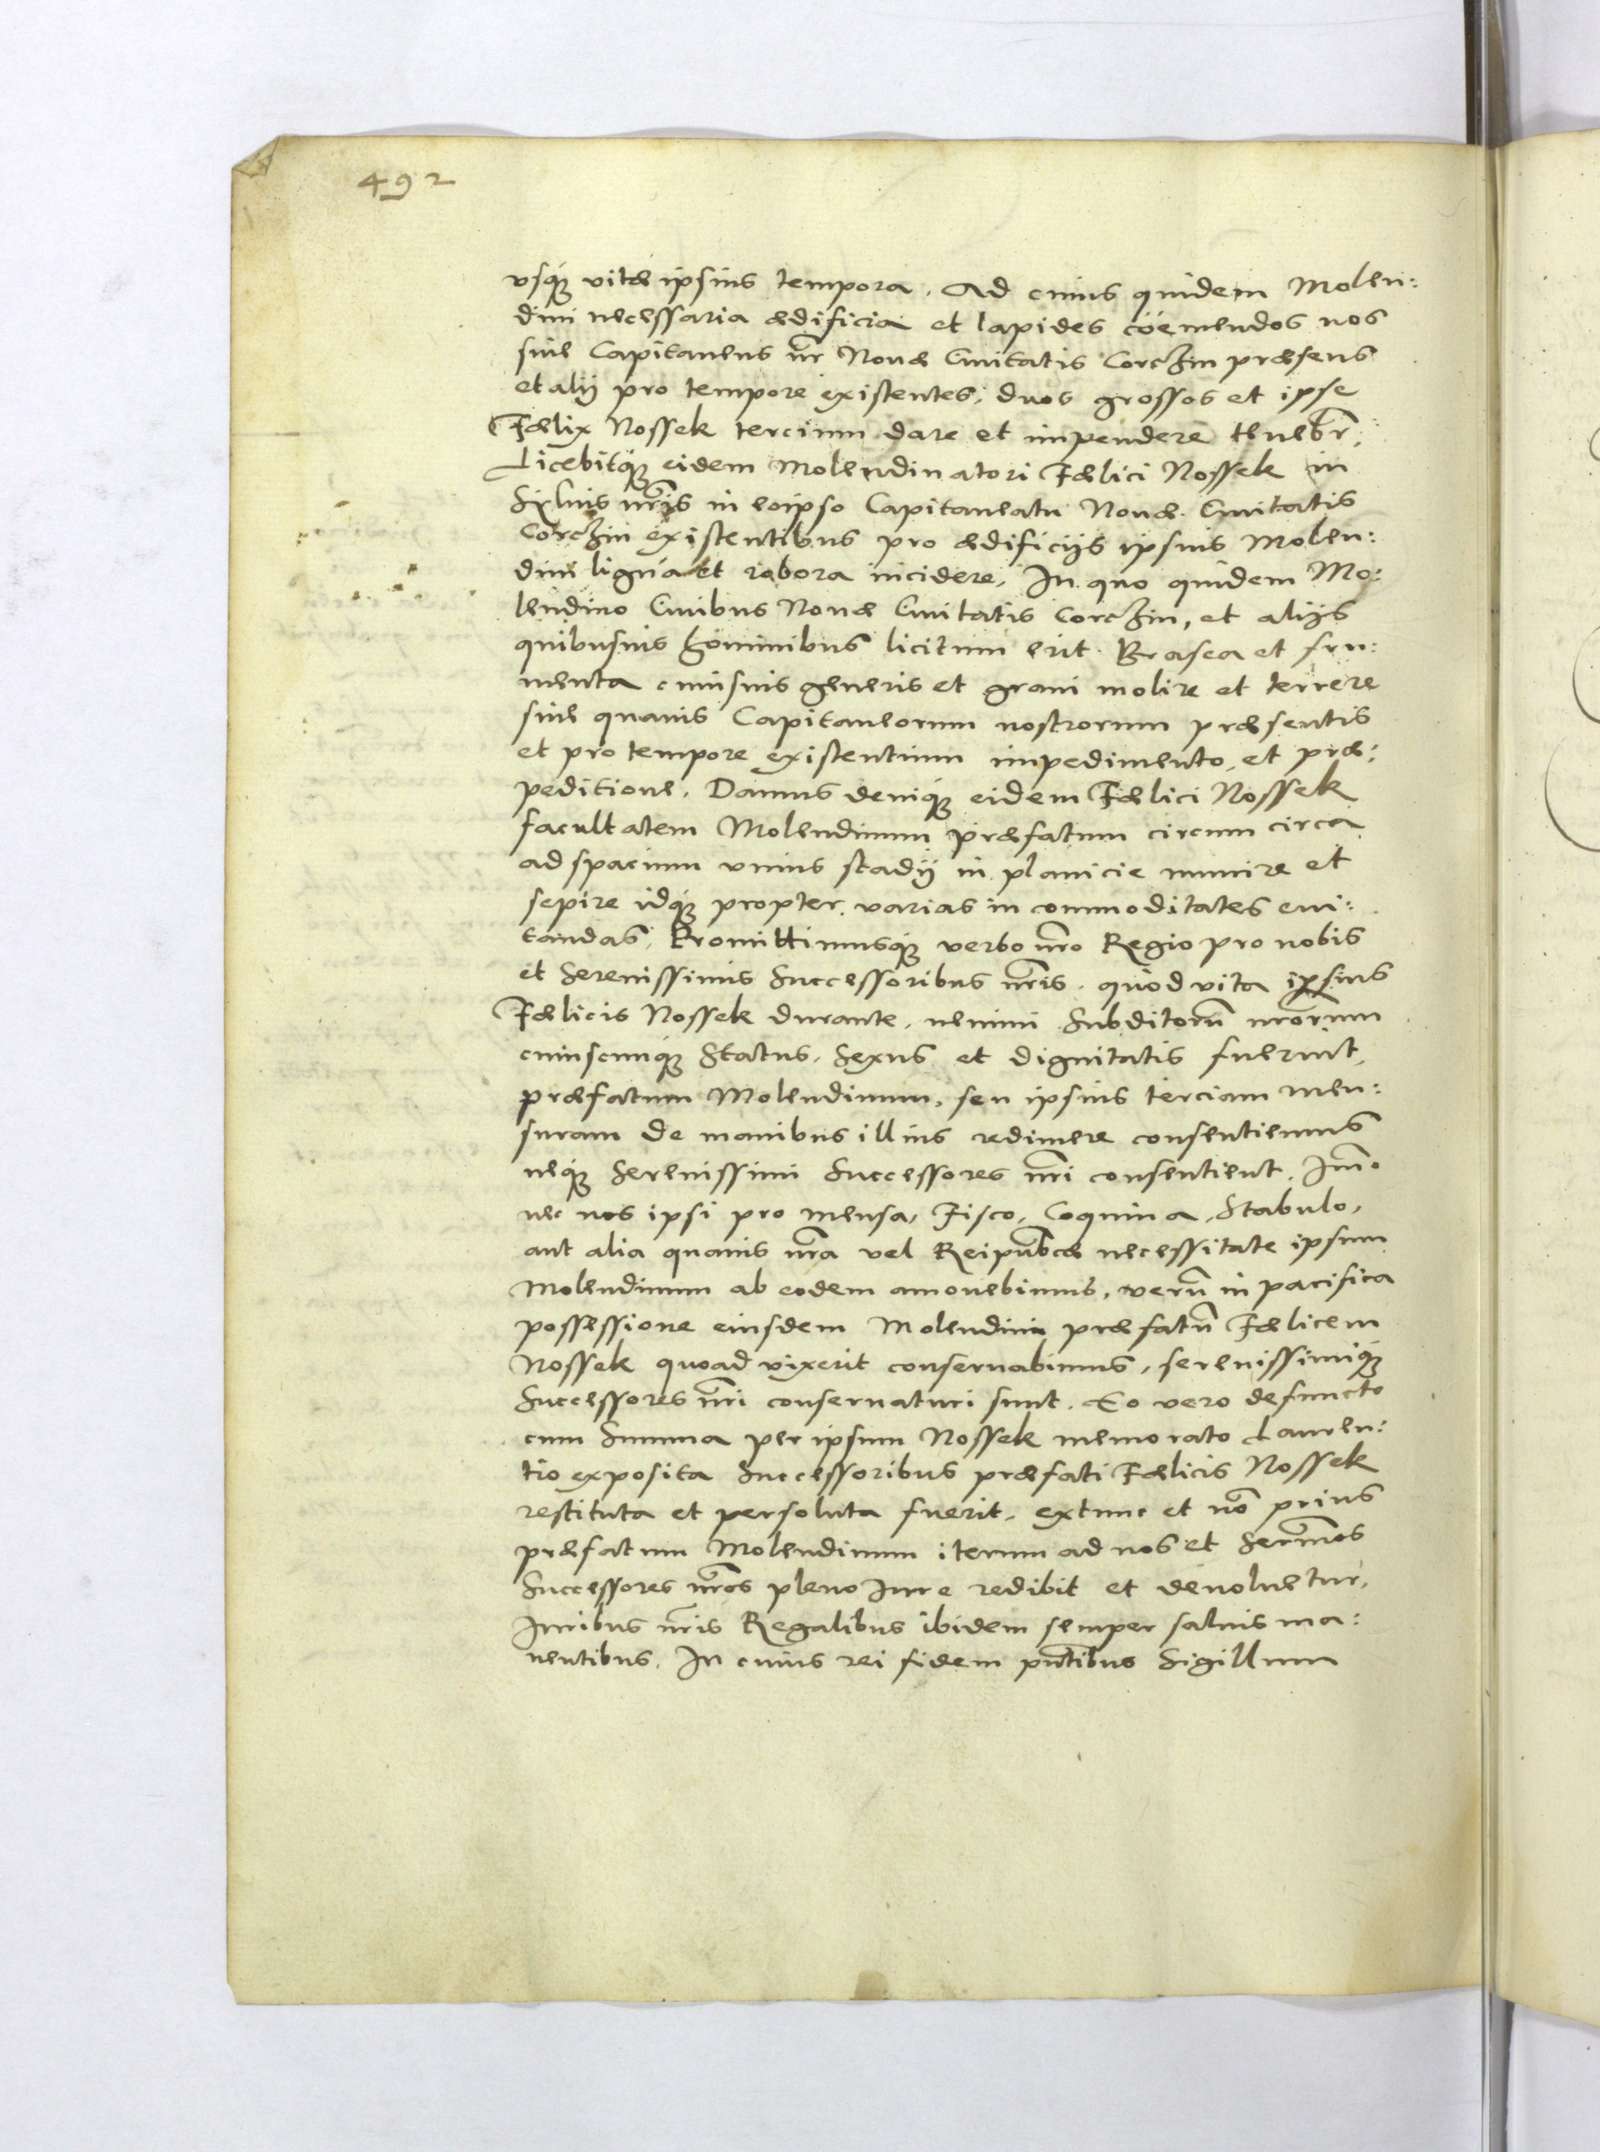 492
vsq́ꝫ vitæ ipsius tempora. Ad cuius quidem Molen:
dini necessaria ædificia et lapides cöemendos nos
siue Capitaneus nr̃ Nouæ Ciuitatis Corczin præsens
et alij pro tempore existentes, duos grossos et ipse
Fælix Nossek tercium dare et impendere tenebr̃.
Licebitq́ꝫ eidem Molendinatori Fælici Nossek in
Syluis nr̃is in eoipso Capitaneatu Nouæ Ciuitatis
Corczin existentibus pro ædificijs ipsius Molen:
dini ligna et robora incidere. In quo quidem Mo:
lendino Ciuibus Nouæ Ciuitatis Corczin, et alijs
quibusuis hominibus licitum erit Brasea et fru:
menta cuiusuis generis et grani molire et terrere
siue quauis Capitaneorum nostrorum præsentis
et pro tempore existentium impedimento et præ:
peditione. Damus deniq́ꝫ eidem Fælici Nossek
facultatem Molendinum præfatum circum circa
ad spacium vnius stadij in planicie munire et
sepire idq́ꝫ propter varias in commoditates eui:
tandas. Promittimusq́ꝫ verbo nr̃o Regio pro nobis
et Serenissimis Successoribus nr̃is. quòd vita ipsius
Fælicis Nossek durante, nemini Subditorũ nr̃orum
cuiuscunq́ꝫ Status, Sexus et dignitatis fuerint
præfatum Molendinum, seu ipsius terciam men:
suram de manibus illius redimere consentiemus
neq́ꝫ Serenissimi Successores nr̃i consentient. Im̃o
nec nos ipsi pro mensa, Fisco, Coquina, Stabulo,
aut alia quauis nr̃a vel Reipub̃cæ necessitate ipsum
Molendinum ab eodem amouebimus, verũ in pacifica
possessione eiusdem Molendini præfatũ Fælicem
Nossek quoad vixerit conseruabimus, serenissimiq́ꝫ
Successores nr̃i conseruaturi sunt. Eo vero defuncto
cum Summa per ipsum Nossek memorato Lauren:
tio exposita Successoribus præfati Fælicis Nossek
restituta et persoluta fuerit, extunc et nõ prius
præfatum Molendinum iterum ad nos et Ser̃mos
Successores nr̃os pleno Iure redibit et deuoluetur,
Iuribus nr̃is Regalibus ibidem semper saluis ma:
nentibus. In cuius rei fidem pñtibus Sigillum